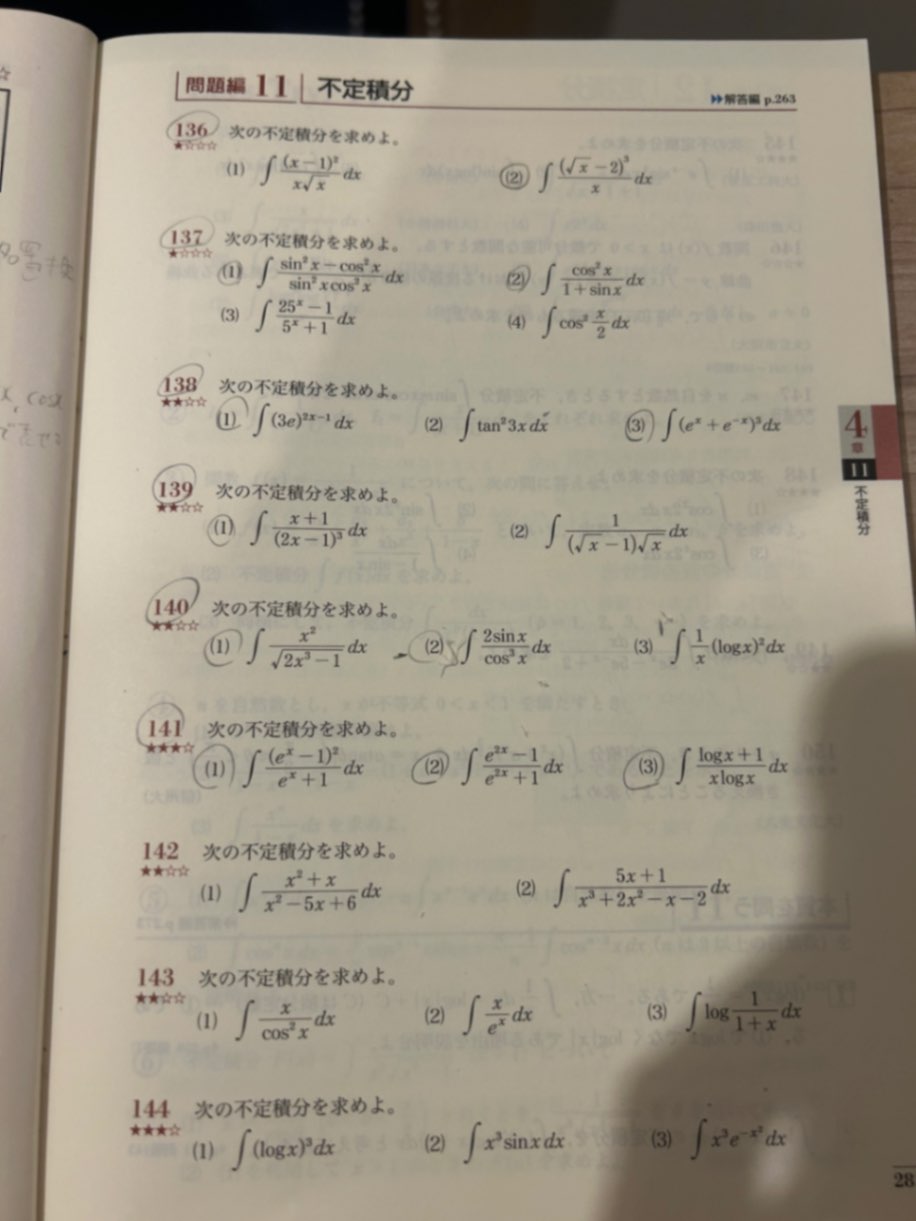 問題編 11 不定積分
▶▶解答編 p.263
136 次の不定積分を求めよ。
★☆☆☆
(1) ∫ (x−1)²/(x√x) dx (2) ∫ (√x−2)³/x dx
137 次の不定積分を求めよ。
★☆☆☆
(1) ∫ (sin²x−cos²x)/(sin²x cos²x) dx (2) ∫ cos²x/(1+sinx) dx
(3) ∫ (25ˣ−1)/(5ˣ+1) dx (4) ∫ cos² x/2 dx
138 次の不定積分を求めよ。
★★☆☆
(1) ∫(3e)²ˣ⁻¹ dx (2) ∫tan²3x dx (3) ∫(eˣ+e⁻ˣ)³dx
139 次の不定積分を求めよ。
★★☆☆
(1) ∫ (x+1)/(2x−1)³ dx (2) ∫ 1/((√x−1)√x) dx
140 次の不定積分を求めよ。
★★☆☆
(1) ∫ x²/√(2x³−1) dx (2) ∫ 2sinx/cos³x dx (3) ∫ 1/x (logx)²dx
141 次の不定積分を求めよ。
★★★☆
(1) ∫ (eˣ−1)²/(eˣ+1) dx (2) ∫ (e²ˣ−1)/(e²ˣ+1) dx (3) ∫ (logx+1)/(xlogx) dx
142 次の不定積分を求めよ。
★★☆☆
(1) ∫ (x²+x)/(x²−5x+6) dx (2) ∫ (5x+1)/(x³+2x²−x−2) dx
143 次の不定積分を求めよ。
★★☆☆
(1) ∫ x/cos²x dx (2) ∫ x/eˣ dx (3) ∫log 1/(1+x) dx
144 次の不定積分を求めよ。
★★★☆
(1) ∫(logx)³dx (2) ∫x³sinx dx (3) ∫x³e^(−x²)dx
4
章
11
不定積分
28